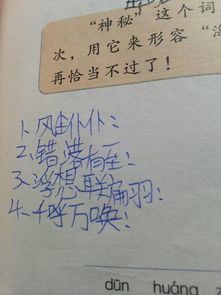 “神秘”这个词
次，用它来形容“海
再恰当不过了！
1、风尘仆仆：
2、错落有至：
3、浮想联翩：
4、千呼万唤：
dūn huáng